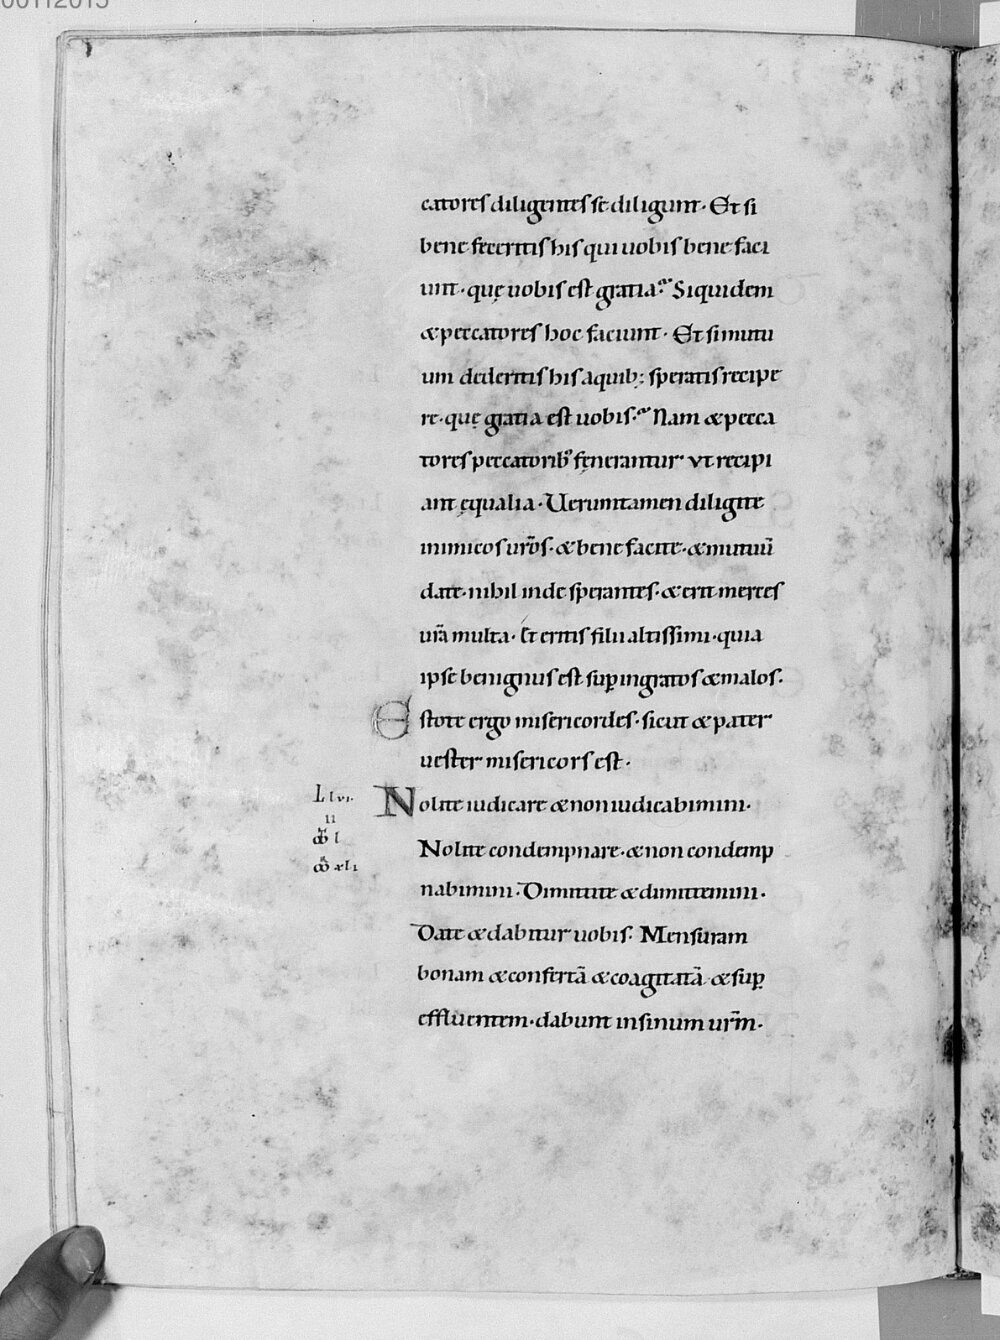 00112015
catores diligentes se diligunt. Et si
bene feceritis his qui uobis bene faci
unt. quę uobis est gratia? Siquidem
& peccatores hoc faciunt. Et si mutu
um dederitis his a quib; speratis recipe
re. quę gratia est uobis? Nam & pecca
tores peccatorib' fęnerantur vt recipi
ant ęqualia. Uerumtamen diligite
inimicos ur̅os. & bene facite. & mutuū
date. nihil inde sperantes. & erit merces
ur̅a multa. Et eritis filii altissimi. quia
ipse benignus est sup̱ ingratos & malos.
Estote ergo misericordes. sicut & pater
uester misericors est.
Nolite iudicare & non iudicabimini.
L lvi.
II
Nolite condempnare. & non condemp
nabimini. Dimittite & dimittemini.
Date & dabitur uobis. Mensuram
bonam & confertā & coagitatā & sup̱
effluentem. dabunt in sinum ur̅m.